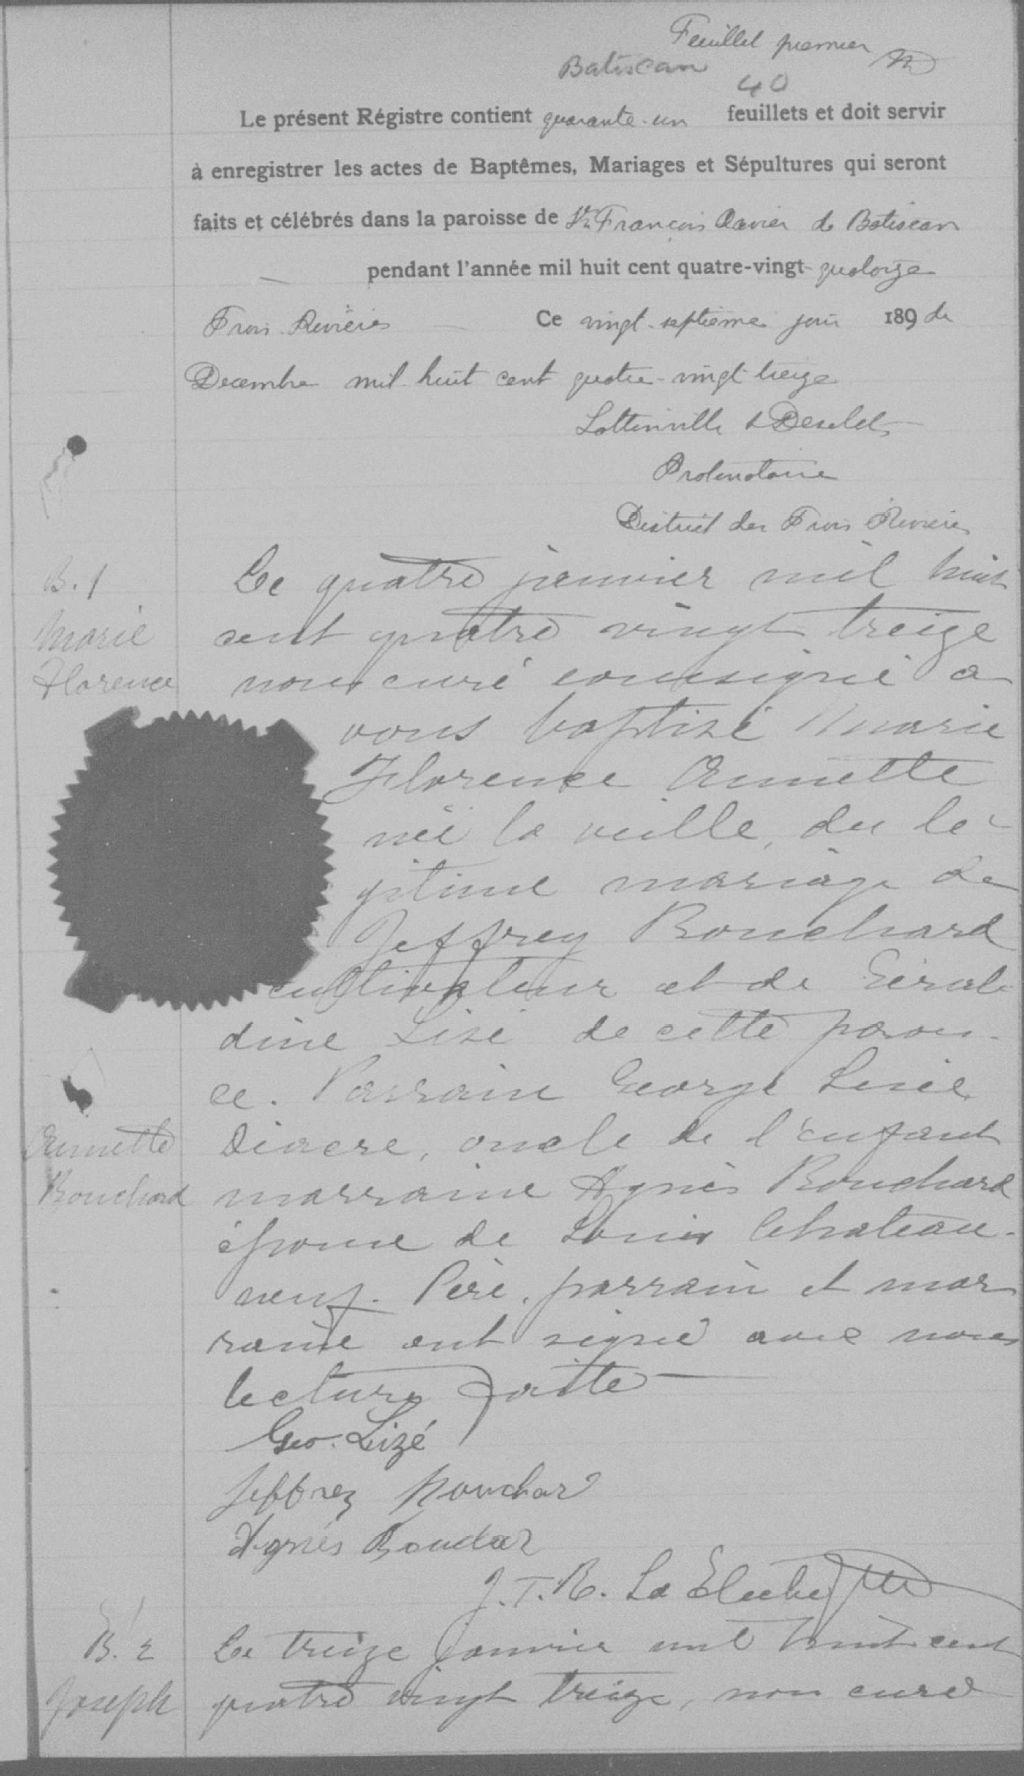 Feuillet premier
Batiscan
40
Le présent Régistre contient quarante-un feuillets et doit servir
à enregistrer les actes de Baptêmes, Mariages et Sépultures qui seront
faits et célébrés dans la paroisse de St François Xavier de Batiscan
pendant l'année mil huit cent quatre-vingt-quatorze
Trois Rivières Ce vingt-septième jour 189 de
Decembre mil huit cent quatre-vingt treize
Lottinville & Desilets
Protonotaire
District des Trois Rivières
B. 1
Marie
Florence
Annette
Bouchard
Le quatre janvier mil huit
cent quatre vingt treize
nous curé soussigné a
vons baptisé Marie
Florence Annette
née la veille, du lé-
gitime mariage de
Jeffrey Bouchard
cultivateur et de Géral-
dine Lizé de cette parois-
se. Parrain George Lizé
Diacre, oncle de l'enfant
marraine Agnès Bouchard
épouse de Louis Chateau-
neuf. Père, parrain et mar
raine ont signé avec nous
lecture faite
Geo. Lizé
Jeffrey Bouchard
Agnès Bouchar
J. T. R. La Flèche Ptre
B. 2
Joseph
Le treize janvier mil huit cent
quatre vingt treize, nous curé